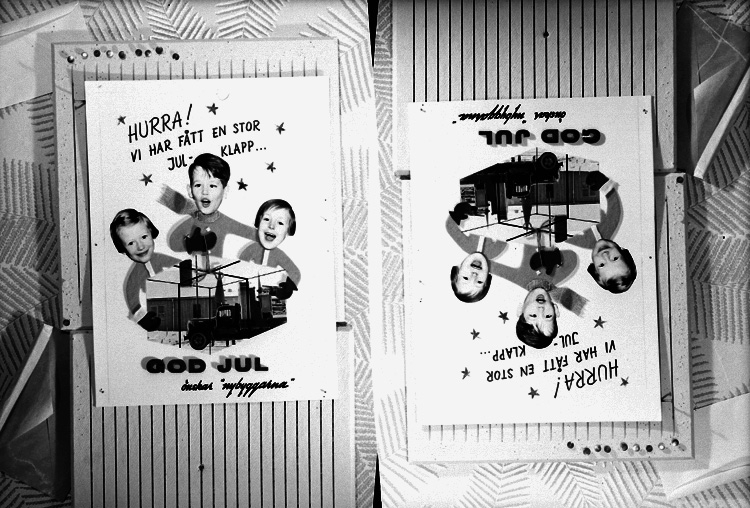 HURRA!
VI HAR FÅTT EN STOR
JUL- KLAPP...
GOD JUL
önskar "nybyggarna"
HURRA!
VI HAR FÅTT EN STOR
JUL- KLAPP...
GOD JUL
önskar "nybyggarna"